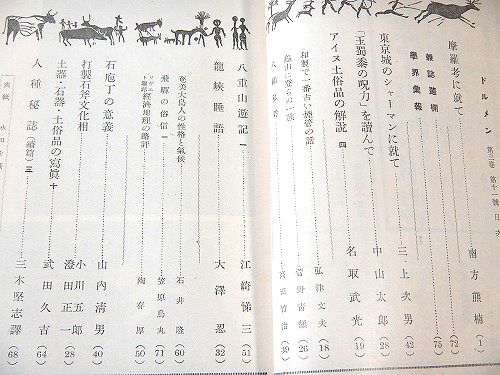 ドルメン 第三卷 第十一號目次
摩羅考に就て 南方熊楠 (1)
雜誌叢欄 (72)
學界彙報 (75)
東京城のシャーマンに就て 三上次男 (42)
「玉蜀黍の呪力」を讀んで 中山太郎 (28)
アイヌ土俗品の解說 四 名取武光 (19)
和製で一番古い煙管の話 弘津文夫 (18)
菅野青顏 (26)
高田竹治 (39)
八重山遊記 一 江崎悌三 (51)
龍峽睡語 大澤忍 (32)
奄美大島人の性格と氣候 石井隆 (60)
飛驒の俗信 一 笠原烏丸 (71)
經濟地理の略評 陶春厚 (50)
石庖丁の意義 山內清男 (40)
打製石斧文化相 小川五郎
澄田正一 (28)
土器・石器・土俗品の寫眞 十 武田久吉 (64)
人種秘誌 (續篇) 三 三木堅志譯 (68)
表紙